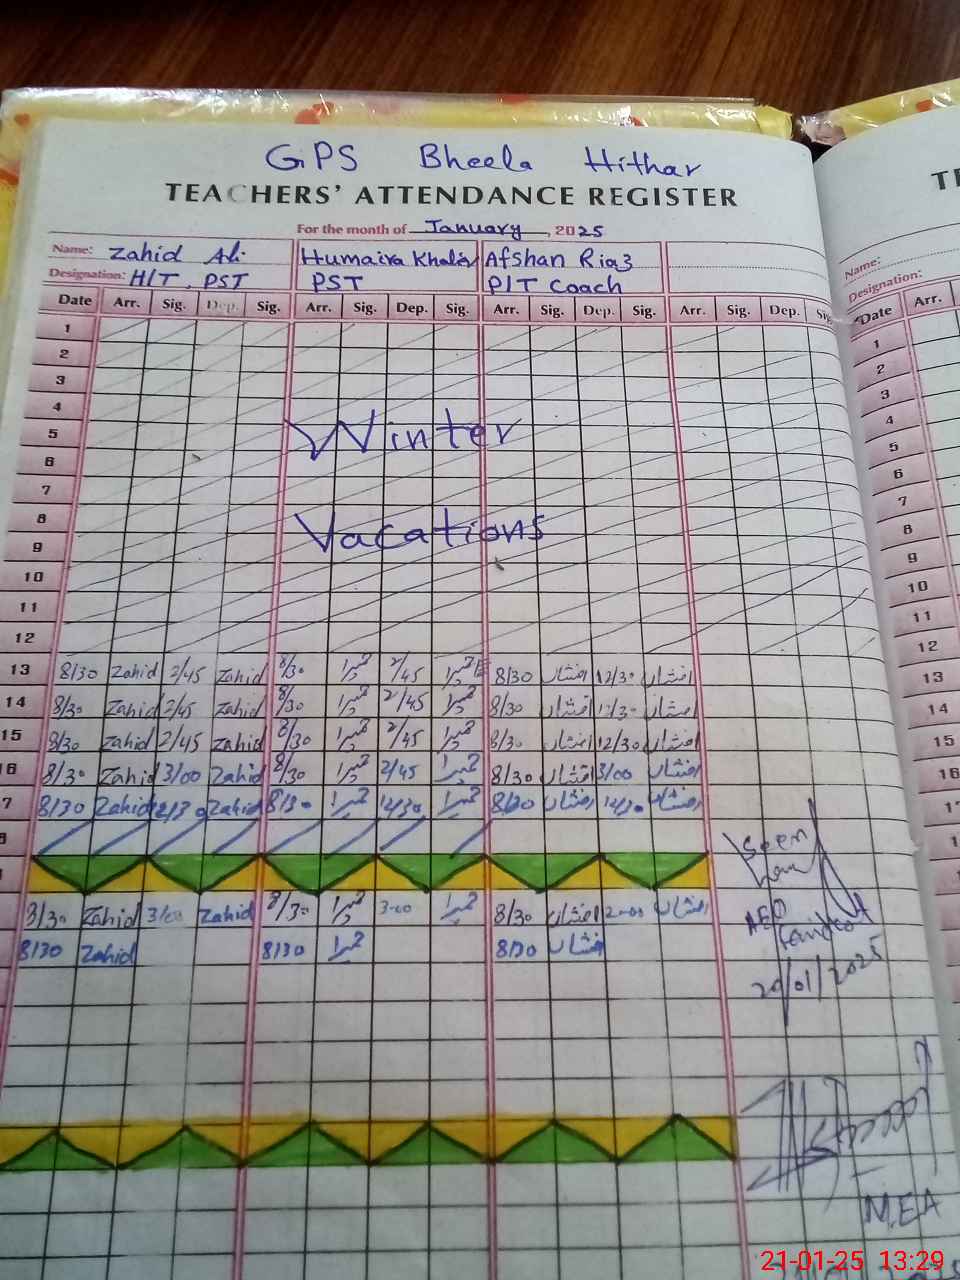 GPS Bheela Hithar
TEACHERS' ATTENDANCE REGISTER
For the month of January, 2025
Name: Zahid Ali Humaira Khalid Afshan Riaz
Designation: H/T, PST PST P/T Coach
Date Arr. Sig. Dep. Sig. Arr. Sig. Dep. Sig. Arr. Sig. Dep. Sig. Arr. Sig. Dep. Sig.
1
2
3
4
5 Winter
6
7
8 Vacations
9
10
11
12
13 8/30 Zahid 2/45 Zahid 8/30 2/45 8/30 افشاں 12/30 افشاں
14 8/30 Zahid 2/45 Zahid 8/30 2/45 8/30 افشاں 12/30 افشاں
15 8/30 Zahid 2/45 Zahid 8/30 2/45 8/30 افشاں 12/30 افشاں
16 8/30 Zahid 3/00 Zahid 8/30 2/45 8/30 افشاں 3/00 افشاں
7 8/30 Zahid 12/30 Zahid 8/30 12/30 8/30 افشاں 12/30 افشاں
8/30 Zahid 3/00 Zahid 8/30 3-00 8/30 افشاں افشاں
8/30 Zahid 8/30 8/30 افشاں
Seen
AEO
20/01/2025
M.E.A
Name:
Designation:
Date Arr.
1
2
3
4
5
6
7
8
9
10
11
12
13
14
15
16
21-01-25 13:29